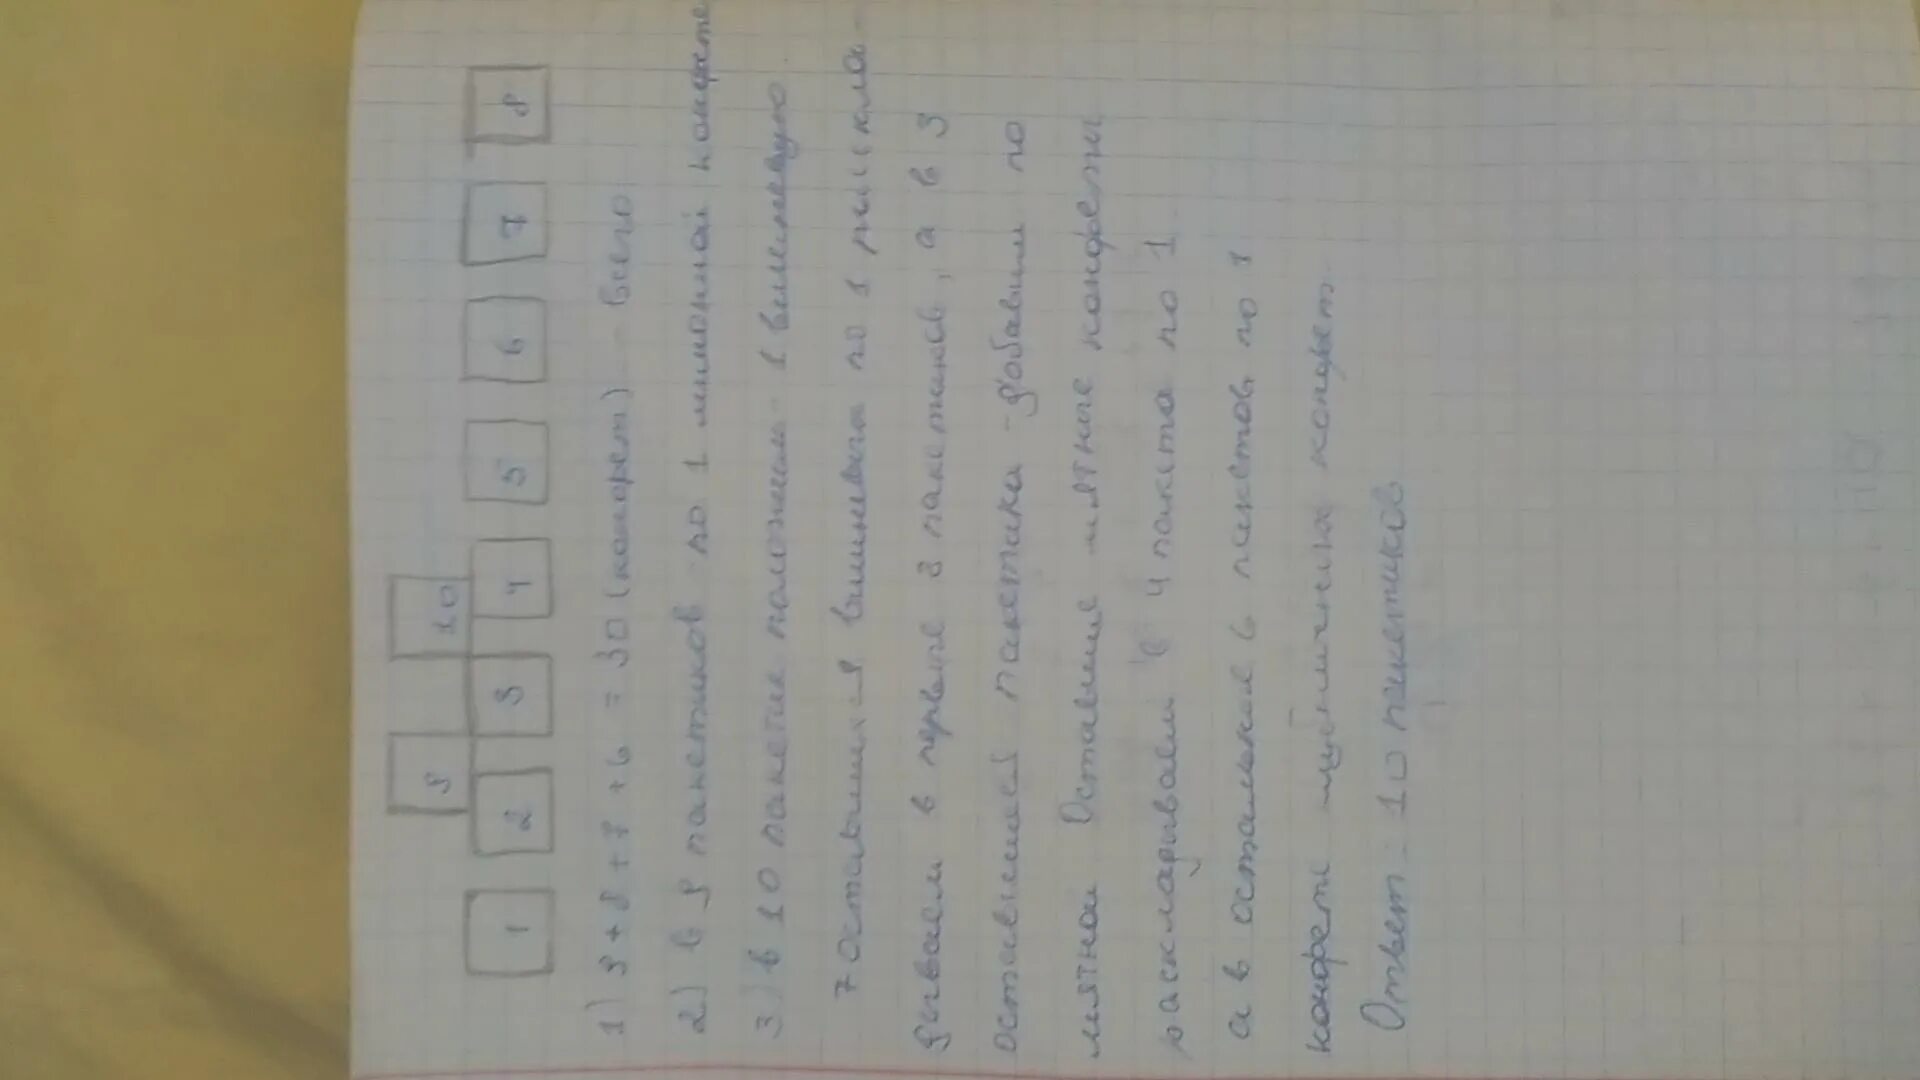 9 10
1 2 3 4 5 6 7 8
1) 9+8+7+6 = 30 (конфет) - всего
2) в 9 пакетиков по 1 лимонной конфете
3) в 10 пакетик положим - 1 вишневую.
7 оставшихся вишневых по 1 мы скла-
дываем в первые пакетиков, а в 3
оставшиеся пакетика - добавим по
мятной. Оставшие мятные конфеты
раскладываем в 4 пакета по 1.
а в остальные 6 пакетов по 1
конфете конфет.
Ответ - 10 пакетиков